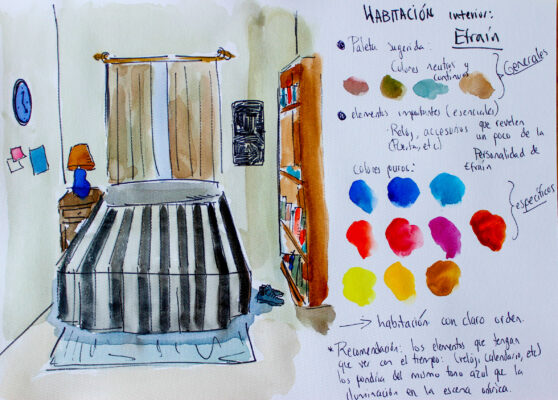 HABITACIÓN interior:
Efraín
Paleta sugerida:
Colores neutros y
continuos
Generales
elementos importantes (esenciales)
Reloj, accesorios que revelen
(Planta, etc) un poco de la
Personalidad de
Efraín
Colores puros:
específicos
→ habitación con claro orden.
* Recomendación: los elementos que tengan
que ver con el tiempo: (reloj, calendario, etc)
los pondría del mismo tono azul que la
iluminación en la escena onírica.